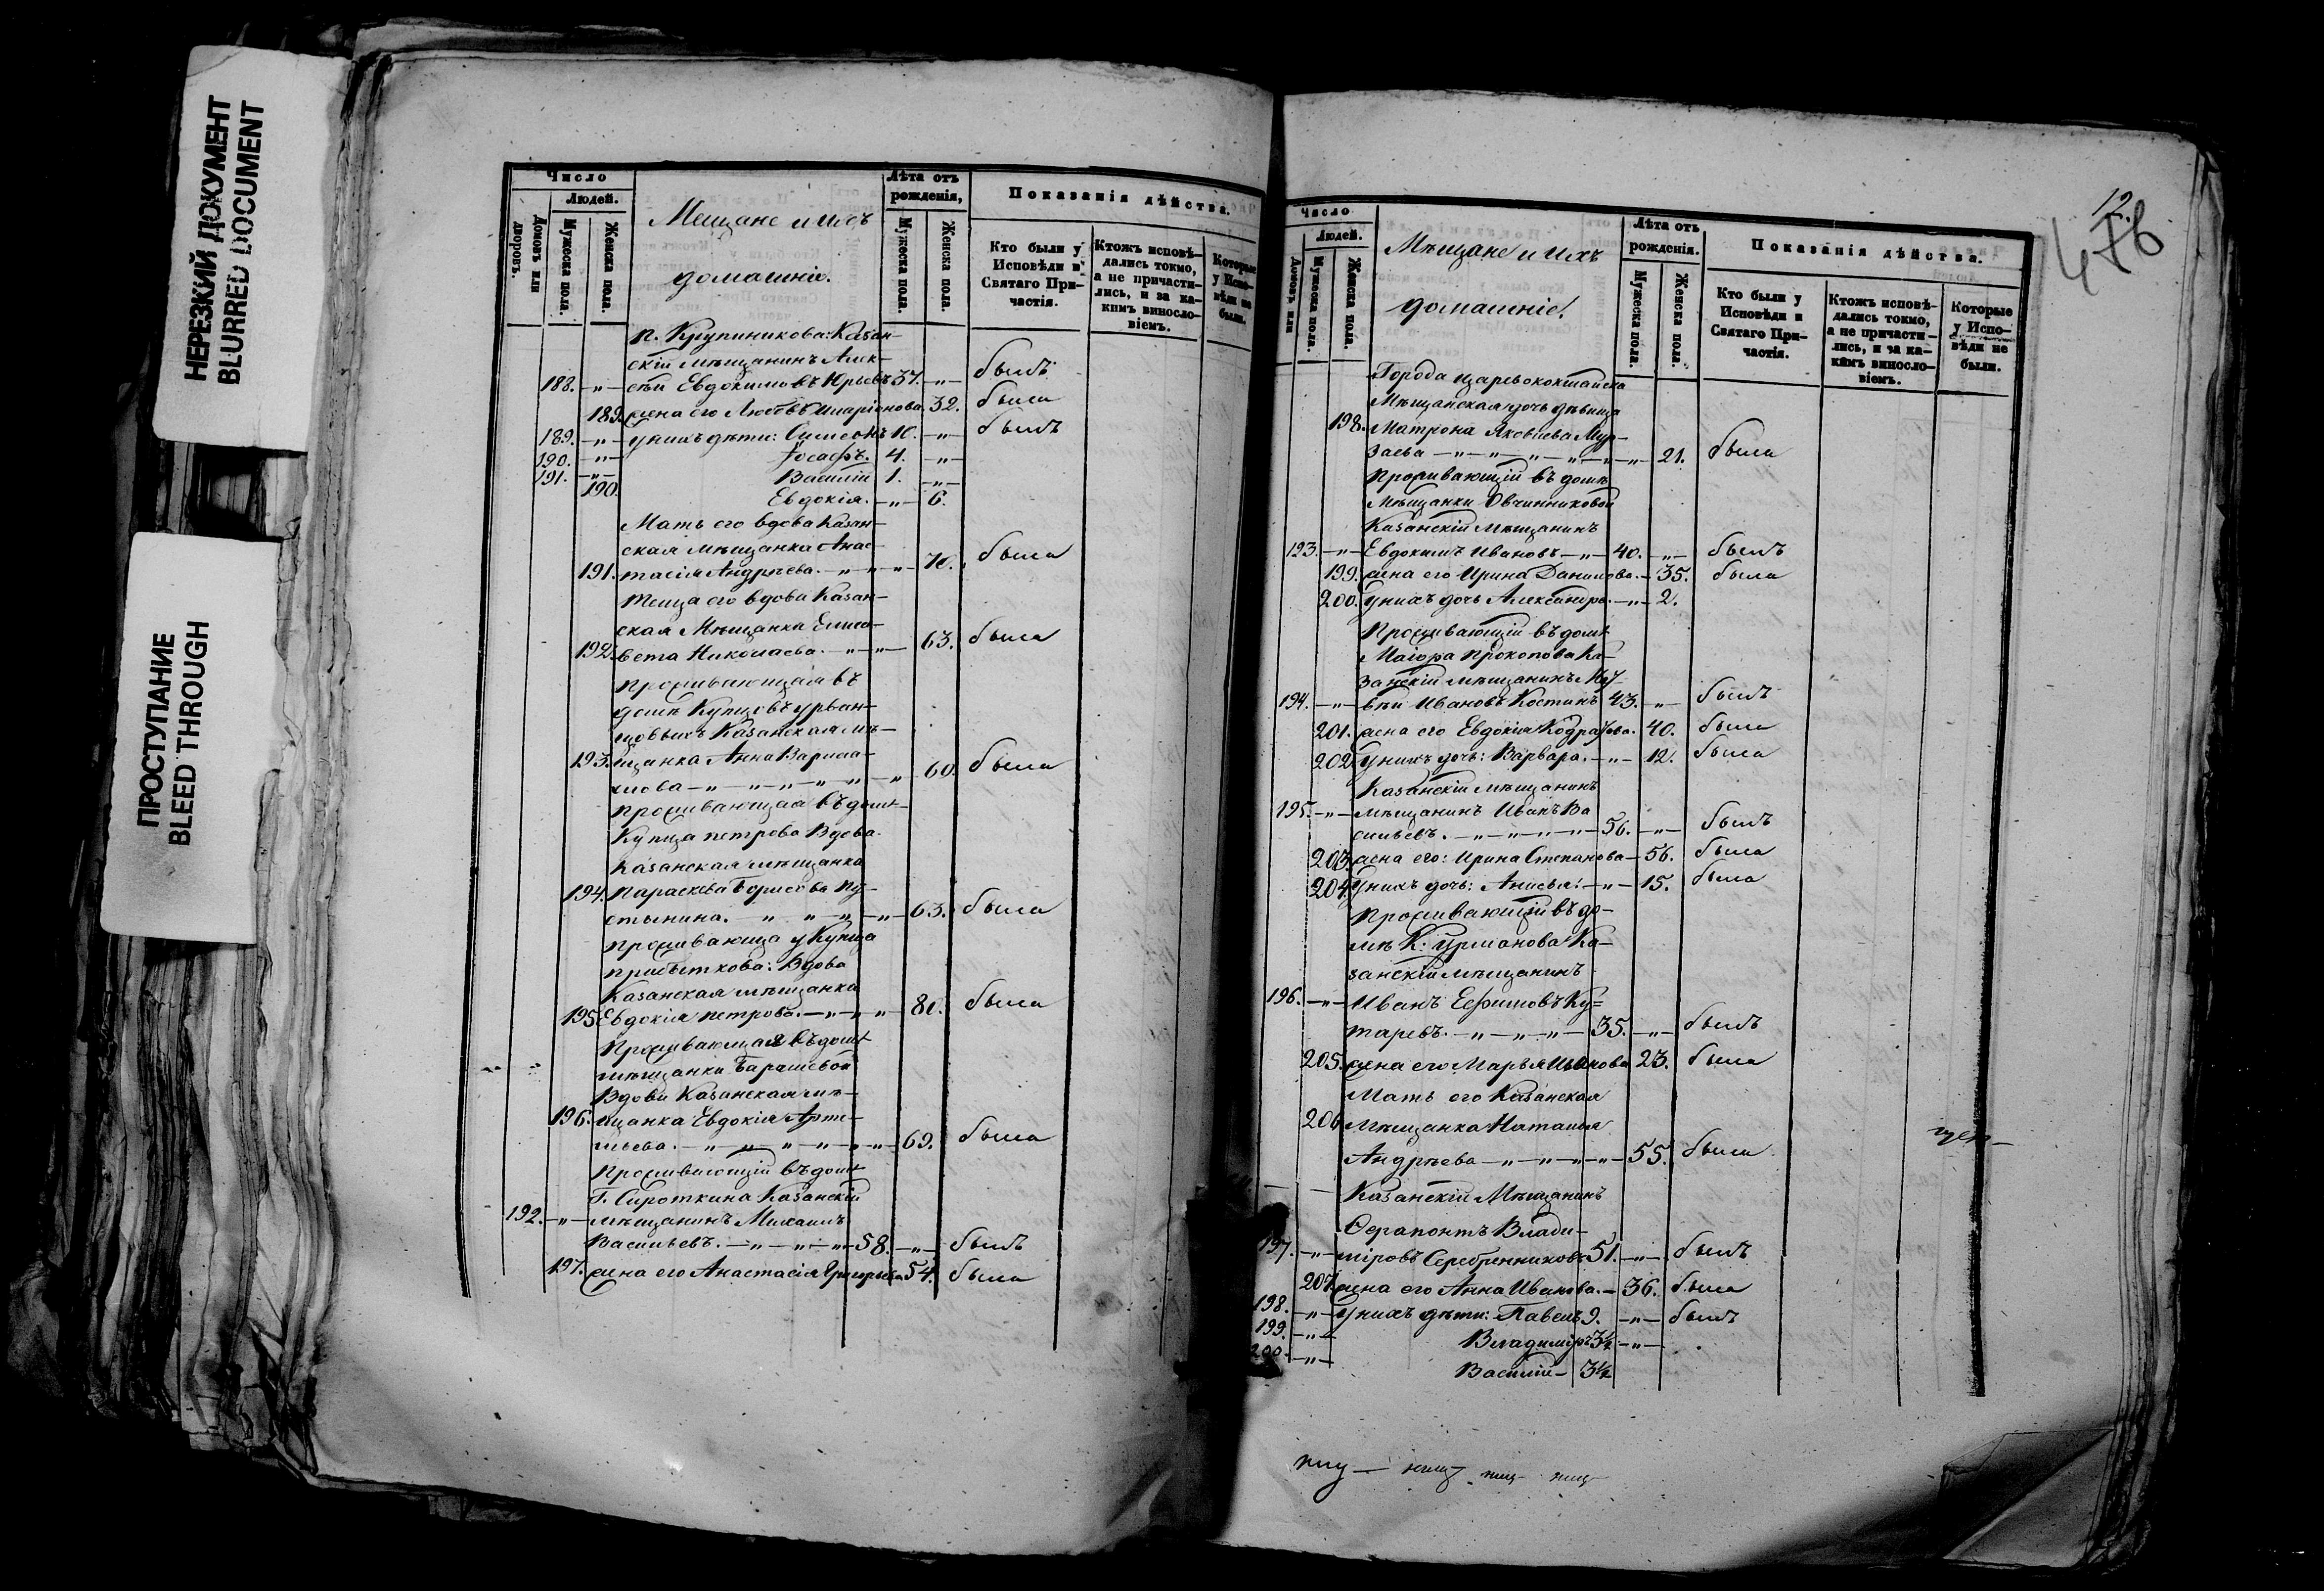 НЕРЕЗКИЙ ДОКУМЕНТ
BLURRED DOCUMENT
ПРОСТУПАНИЕ
BLEED THROUGH
Число
Людей.
Домовъ или дворовъ.
Мужеска пола.
Женска пола.
Мещане и ихъ
домашніе.
Лѣта отъ рожденія,
Мужеска пола.
Женска пола.
Показанія дѣйства.
Кто были у Исповѣди и Святаго Причастія.
Ктожъ исповѣдались токмо, а не причастились, и за какимъ винословіемъ.
Которые у Исповѣди не были.
п. Крупникова: Казан-
скій мѣщанинъ Алек-
188. —„— сѣй Евдокимовъ Юрьевъ 37. —„— былъ
189. жена его Любовь Иларіонова. 32. была
189. —„— У нихъ дѣти: Симеонъ 10. —„— былъ
190. —„— Іосафъ. 4. —„—
191. —„— Василій 1. —„—
190. Евдокія. —„— 6.
Мать его вдова Казан-
ская мѣщанка Анас-
191. тасія Андрѣева. —„—„— 70. была
Теща его вдова Казан-
ская Мѣщанка Елиса-
192. вета Николаева. —„—„— 63. была
Проживающая въ
домѣ Купцовъ Урван-
цовыхъ Казанская мѣ-
193. щанка Анна Варлаа-
мова —„—„—„—„—„ 60. была
Проживающая въ домѣ
Купца Петрова Вдова
Казанская мѣщанка
194. Параскева Борисова Пу-
стынина. —„—„—„—„— 63. была
Проживающа у Купца
Прибыткова: Вдова
Казанская мѣщанка
195. Евдокія Петрова. —„—„—„— 80. была
Проживающая въ домѣ
мѣщанки Барашевой
Вдова Казанская мѣ-
196. щанка Евдокія Арте-
мьева. —„—„—„—„—„— 69. была
Проживающій въ домѣ
Г. Сироткина Казанскій
192. —„— мѣщанинъ Михаилъ
Васильевъ. —„—„—„— 58. —„— былъ
197. жена его Анастасія Григорьева 54. была
12.
476
Число
Людей.
Домовъ или
Мужеска пола.
Женска пола.
Мѣщане и ихъ
домашніе.
Лѣта отъ рожденія.
Мужеска пола.
Женска пола.
Показанія дѣйства.
Кто были у Исповѣди и Святаго Причастія.
Ктожъ исповѣдались токмо, а не причастились, и за какимъ винословіемъ.
Которые у Исповѣди не были.
Города Царевококшайска
Мѣщанская дочь дѣвица
198. Матрона Яковлева Мур-
заева —„—„—„—„—„— 21. была
Проживающій въ домѣ
Мѣщанки Овчинниковой
Казанскій мѣщанинъ
193. —„— Евдокимъ Ивановъ —„— 40. —„— былъ
199. жена его Ирина Данилова. — 35. была
200. У нихъ дочь Александра. —„— 2.
Проживающій въ домѣ
Маіора Прокопова Ка-
занскій мѣщанинъ Мат-
194. —„— вѣй Ивановъ Костинъ 43. —„— былъ
201. жена его Евдокія Кодратьева. 40. была
202. У нихъ дочь: Варвара. —„— 12. была
Казанскій мѣщанинъ
195. —„— мѣщанинъ Иванъ Ва
сильевъ. —„—„—„—„— 56. —„— былъ
203. жена его: Ирина Степанова — 56. была
204. У нихъ дочь: Анисья: —„— 15. была
Проживающій въ до-
мѣ К. Урманова Ка-
занскій мѣщанинъ
196. —„— Иванъ Ефимовъ Ку=
таревъ. —„—„—„— 35. —„— былъ
205. жена его Марья Иванова 23. была
Мать его Казанская
206 мѣщанка Наталья
Андрѣева —„—„—„—„— 55. была
Казанскій Мѣщанинъ
Ѳерапонтъ Влади-
197. —„— міровъ Серебренниковъ 51. —„— былъ
207. жена его Анна Иванова. — 36. была
198. —„— У нихъ дѣти: Павелъ 9. —„— былъ
199. —„— Владиміръ 3½ —„—
200. —„— Василій — 3½